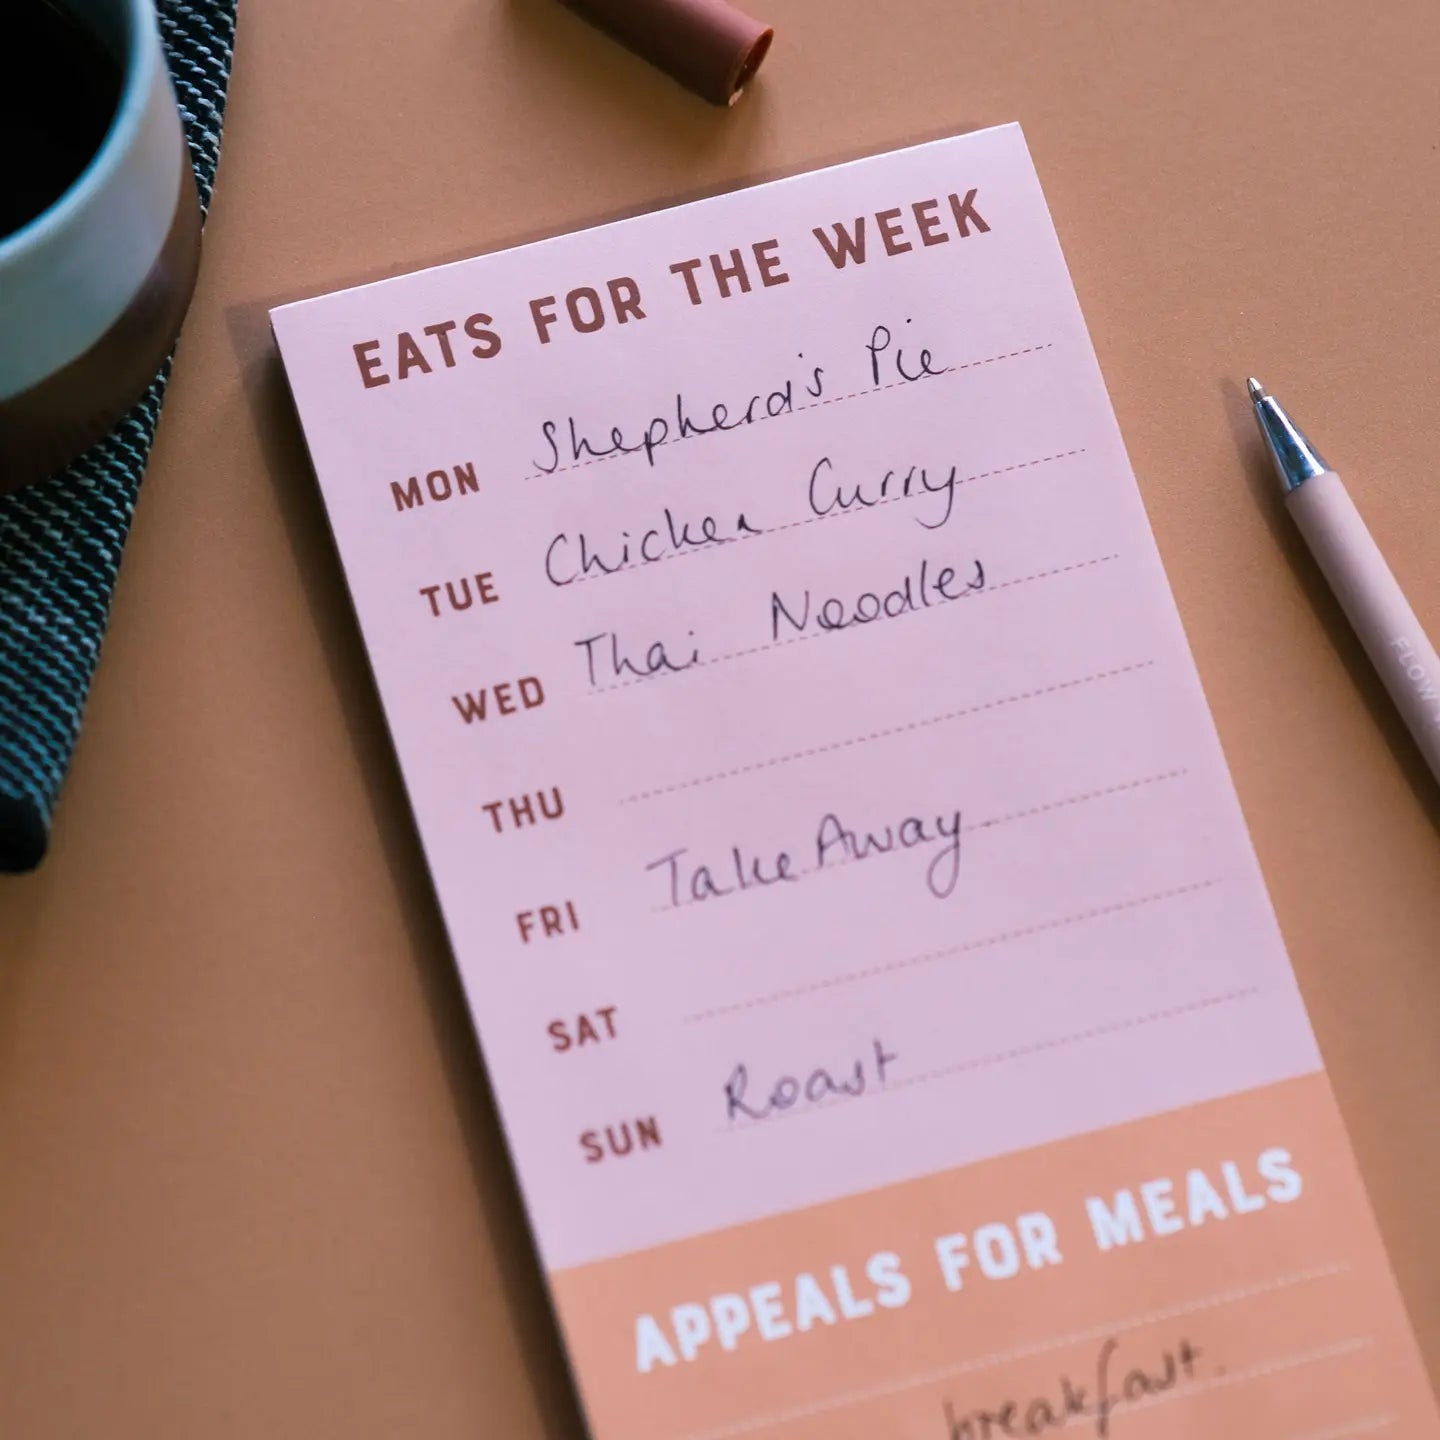 EATS FOR THE WEEK
MON Shepherd's Pie
TUE Chicken Curry
WED Thai Noodles
THU
FRI Take Away.
SAT
SUN Roast
APPEALS FOR MEALS
breakfast.
FLOW